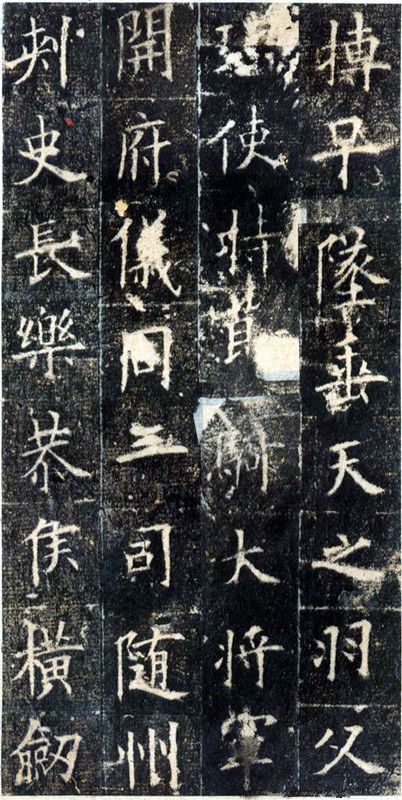 搏早墜垂天之羽父
使持騎大將軍
開府儀同三司随州
刺史長樂恭侯橫劒